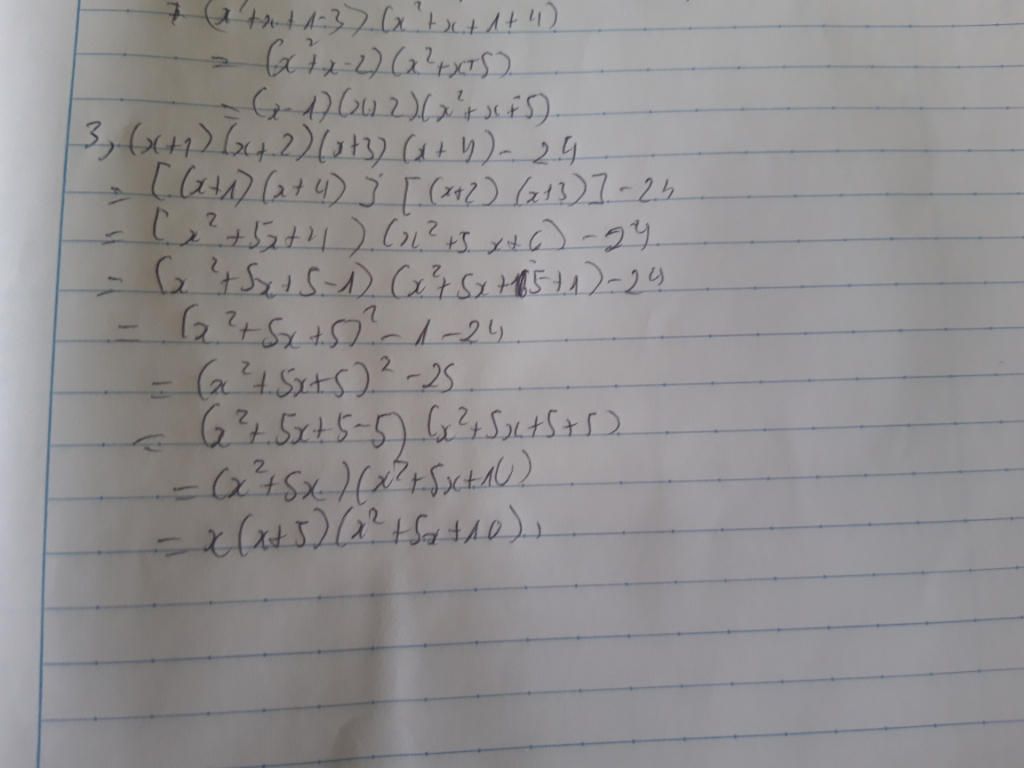 = (x²+x+1-3) (x²+x+1+4)
= (x²+x-2) (x²+x+5)
= (x-1) (x+2) (x²+x+5)
3, (x+1) (x+2) (x+3) (x+4) - 24
= [(x+1) (x+4)] [(x+2) (x+3)] - 24
= (x²+5x+4) (x²+5x+6) - 24
= (x²+5x+5-1) (x²+5x+5+1) - 24
= (x²+5x+5)² - 1 - 24
= (x²+5x+5)² - 25
= (x²+5x+5-5) (x²+5x+5+5)
= (x²+5x) (x²+5x+10)
= x(x+5) (x²+5x+10),